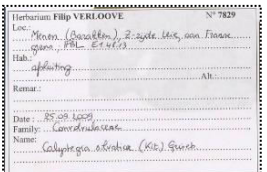 Herbarium Filip VERLOOVE N° 7829
Loc.:
Menen (Barakken), Z-zijde Leie, aan Franse
grens, IFBL E1.48.13
Hab.:
afsluiting
Alt.:
Remar.:
Date: 25.09.2009
Family: Convolvulaceae
Name:
Calystegia silvatica (Kit.) Griseb.